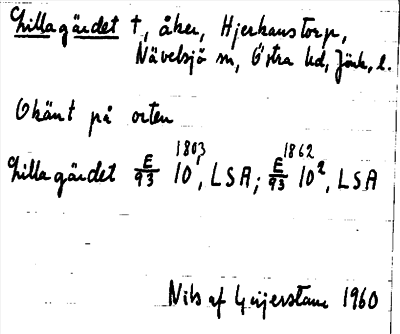 Lillagärdet †, åker, Hjerkanstorp,
Nävelsjö sn, Östra hd, Jönk. l.
Okänt på orten
1803 1862
Lillagärdet E/93 10¹, LSA; E/93 10², LSA
Nils af Geijerstam 1960